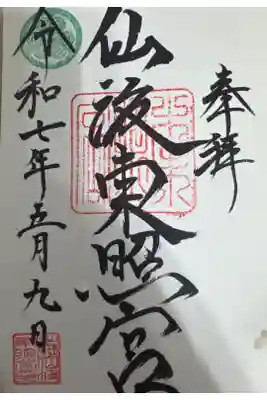 奉拝
仙波東照宮
令和七年五月九日